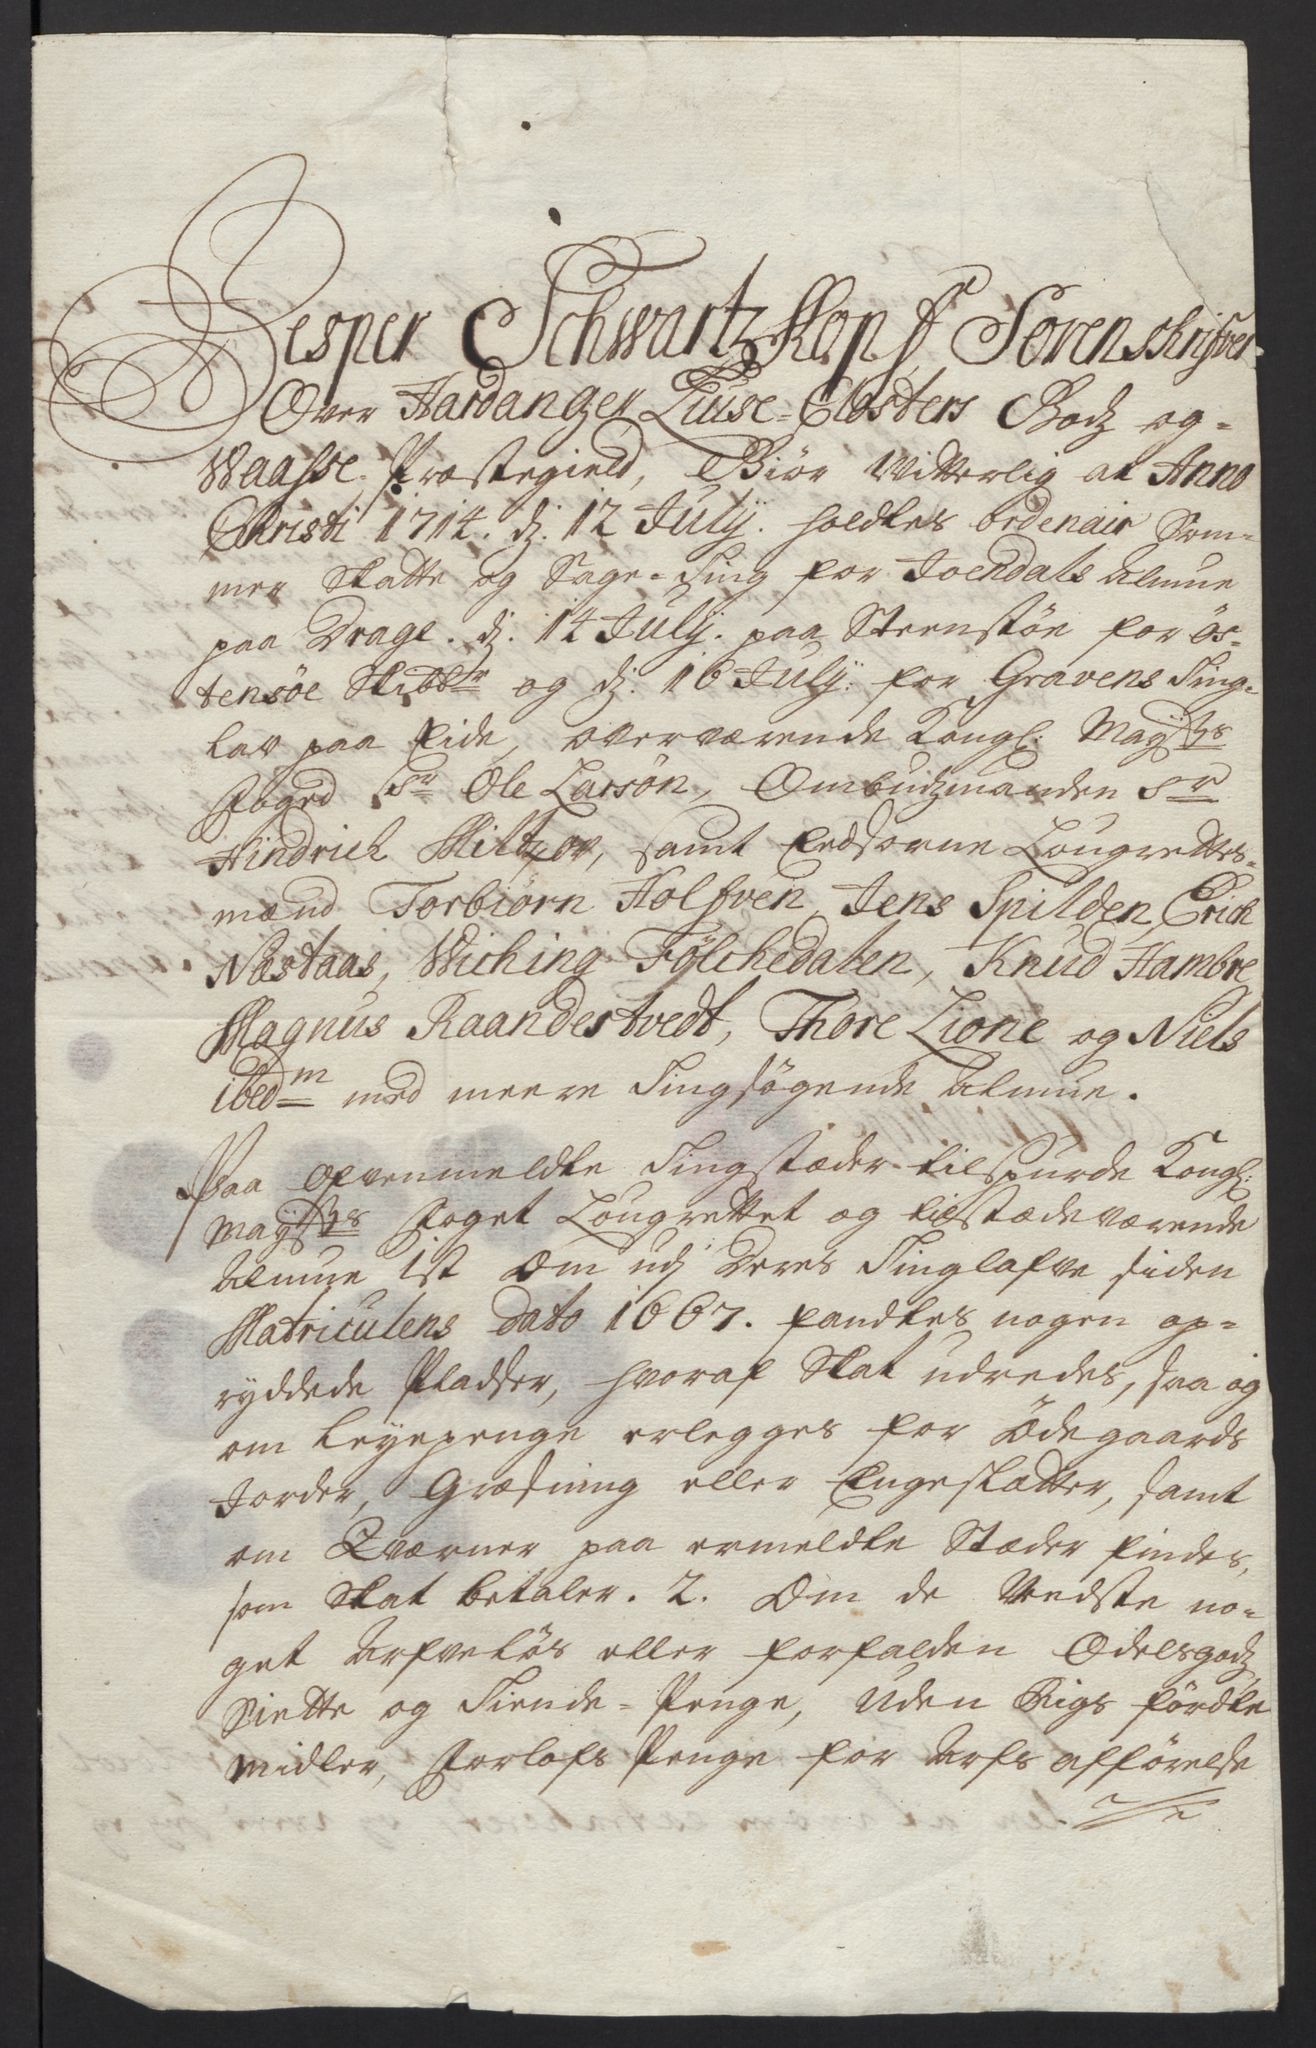 Jesper Schwartzkopf Sorenskrifver
Over Hardanger Luise-Closters Godz og-
Waasse Præstegield, Giör Witterlig at Anno
Christi 1714. d. 12 Julij. holdtes ordenair Som-
mer Skatte og Sage-Ting for Joendals Almue
paa Drage. d. 14 Julij. paa Steenstöe for Ös-
tensöe Skibbr og d. 16 Julij. for Gravens Ting-
lav paa Eide, overværende Kongl: Mayts
Foged Sr Ole Larsøn, Ombudzmanden Sr
Hindrich Miltzov, samt Eedsorne Lougrettes-
mænd Torbiörn Holfven, Jens Spilden, Erich
Næstaas, Wiching Fölchedalen, Knud Hambre
Magnus Raandestvedt, Thore Lione og Niels
ibedm med meere Tingsögende Almue.
Paa ofvenmeldte Tingstæder tilspurde Kongl:
Mayts Foget Lougrettet og tilstædeværende
Almue 1st Om udj Deres Tinglafve siden
Matriculens Dato 1667. fandtes nogen op-
ryddede Pladser, hvoraf Skat udredes, saa og
om Leyepenge erlegges for Ödegaards
Jorder, Græsning eller Engeslætter, samt
om Qværner paa ermeldte Stæder findes,
som Skat betaler. 2. Om de Vedste no-
get Arfvelös eller forfalden Odelsgodz
Siette og Tiende-Penge, Uden Rigs fördte
midler, Forlofs Penge for Arfs afförelse